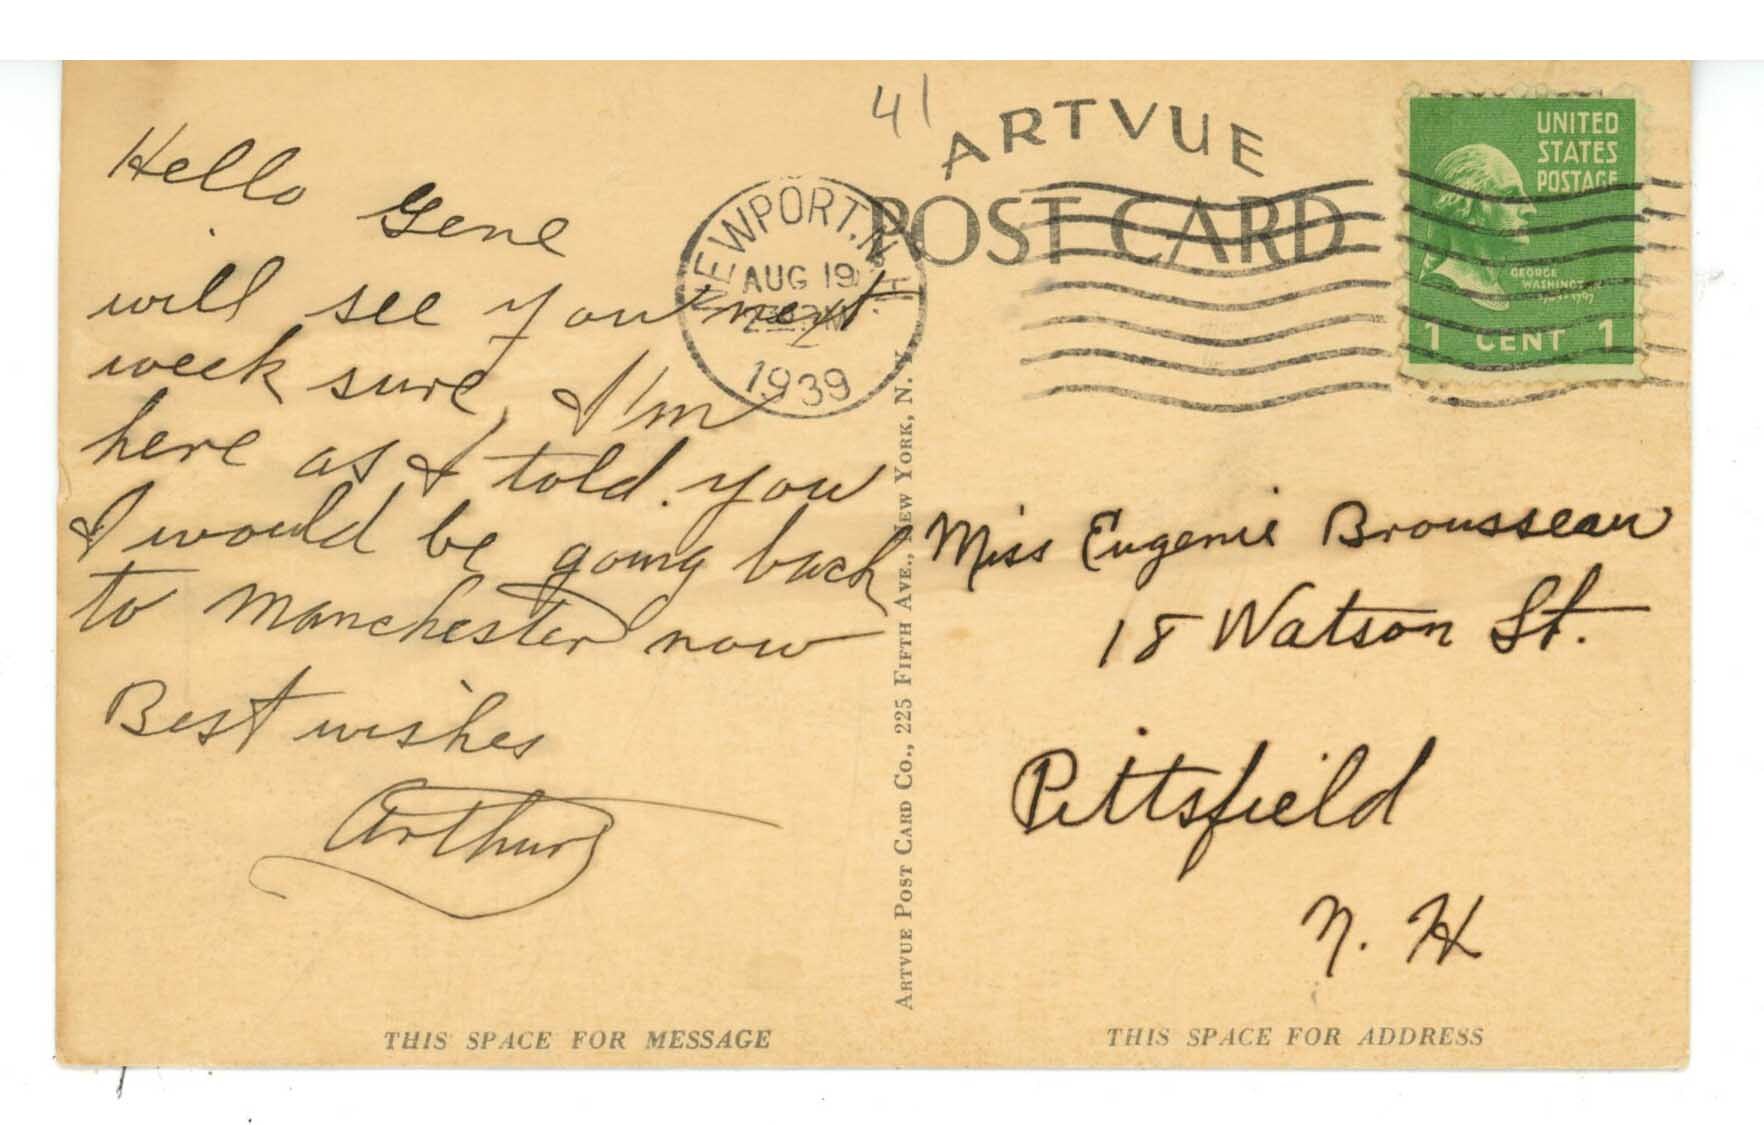 41
ARTVUE
POST CARD
UNITED
STATES
POSTAGE
GEORGE
WASHINGTON
1 CENT 1
NEWPORT, N.H.
AUG 19
1939
Hello Gene
will see you next
week sure, I'm
here as I told you
I would be going back
to Manchester now
Best wishes
Arthur
Miss Eugenie Brousseau
18 Watson St.
Pittsfield
N. H
ARTVUE POST CARD CO., 225 FIFTH AVE., NEW YORK, N. Y.
THIS SPACE FOR MESSAGE
THIS SPACE FOR ADDRESS